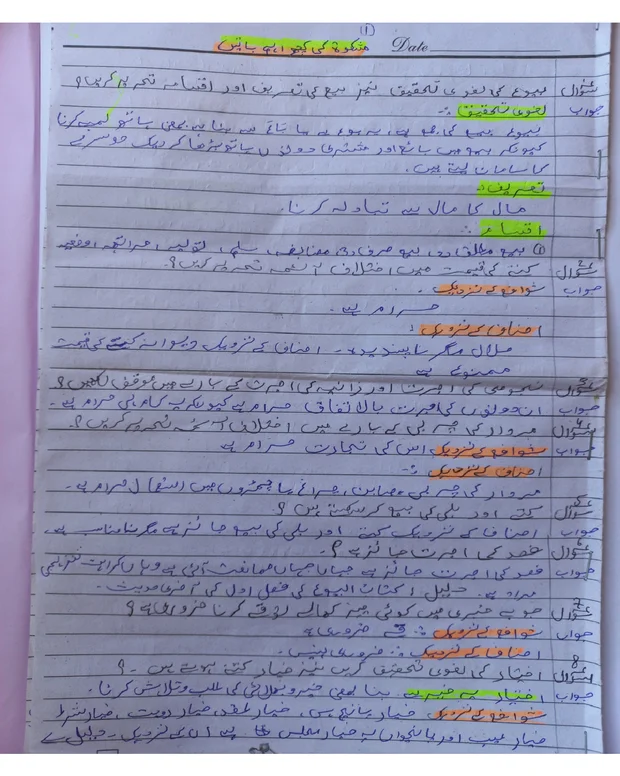 (1)
مشکوۃ کی کچھ اہم باتیں Date
سوال بیوع کی لغوی تحقیق نیز بیع کی تعریف اور اقسام تحریر کریں؟
جواب لغوی تحقیق :۔
بیوع بیع کی جمع ہے، یہ بوع سے یا باع سے بنا ہے بمعنی ہاتھ لمبے کرنا
کیونکہ بیع میں بائع اور مشتری دونوں ہاتھ بڑھا کر ایک دوسرے
کا سامان لیتے ہیں۔
تعریف:۔
مال کا مال سے تبادلہ کرنا۔
اقسام :۔
① بیع مطلق بیع صرف مقایضہ سلم تولیہ مرابحہ
سوال 2 کتے کی قیمت میں اختلاف آئمہ تحریر کریں؟
جواب شوافع کے نزدیک :۔
حرام ہے۔
احناف کے نزدیک :
حلال مگر ناپسندیدہ۔ احناف کے نزدیک دیوانے کتے کی قیمت
ممنوع ہے
سوال 3 نجومی کی اجرت اور زانیہ کی اجرت کے بارے میں موقف لکھیں؟
جواب ان دونوں کی اجرت بالاتفاق حرام ہے کیونکہ یہ کام ہی حرام ہے۔
سوال 4 مردار کی چربی کے بارے میں اختلاف آئمہ تحریر کریں؟
جواب شوافع کے نزدیک اس کی تجارت حرام ہے
احناف کے نزدیک :۔
مردار کی چربی صابن، چراغ یا چمڑوں میں استعمال حرام ہے۔
سوال 5 کتے اور بلی کی بیع کر سکتے ہیں؟
جواب احناف کے نزدیک کتے اور بلی کی بیع جائز ہے مگر نامناسب ہے۔
سوال 6 فصد کی اجرت جائز ہے؟
جواب فصد کی اجرت جائز ہے جہاں جہاں ممانعت آئی ہے وہاں کراہت تنزیہی
مراد ہے۔ دلیل : کتاب البیوع کی فصل اول کی آخری حدیث۔
سوال 7 جو بے خبری میں کوئی چیز کھا لے تو قے کرنا ضروری ہے؟
جواب شوافع کے نزدیک :۔ قے ضروری ہے
احناف کے نزدیک :۔ ضروری نہیں۔
سوال 8 اختیار کی لغوی تحقیق کریں نیز خیار کتنے ہوتے ہیں۔؟
جواب اختیار یہ خیر سے بنا بمعنی خیر و بھلائی کی طلب و تلاش کرنا۔
شوافع کے نزدیک خیار پانچ ہیں، خیار عقد، خیار رویت، خیار شرط
خیار عیب اور پانچواں یہ خیار مجلس ہے ان کے نزدیک۔ دلیل ہے